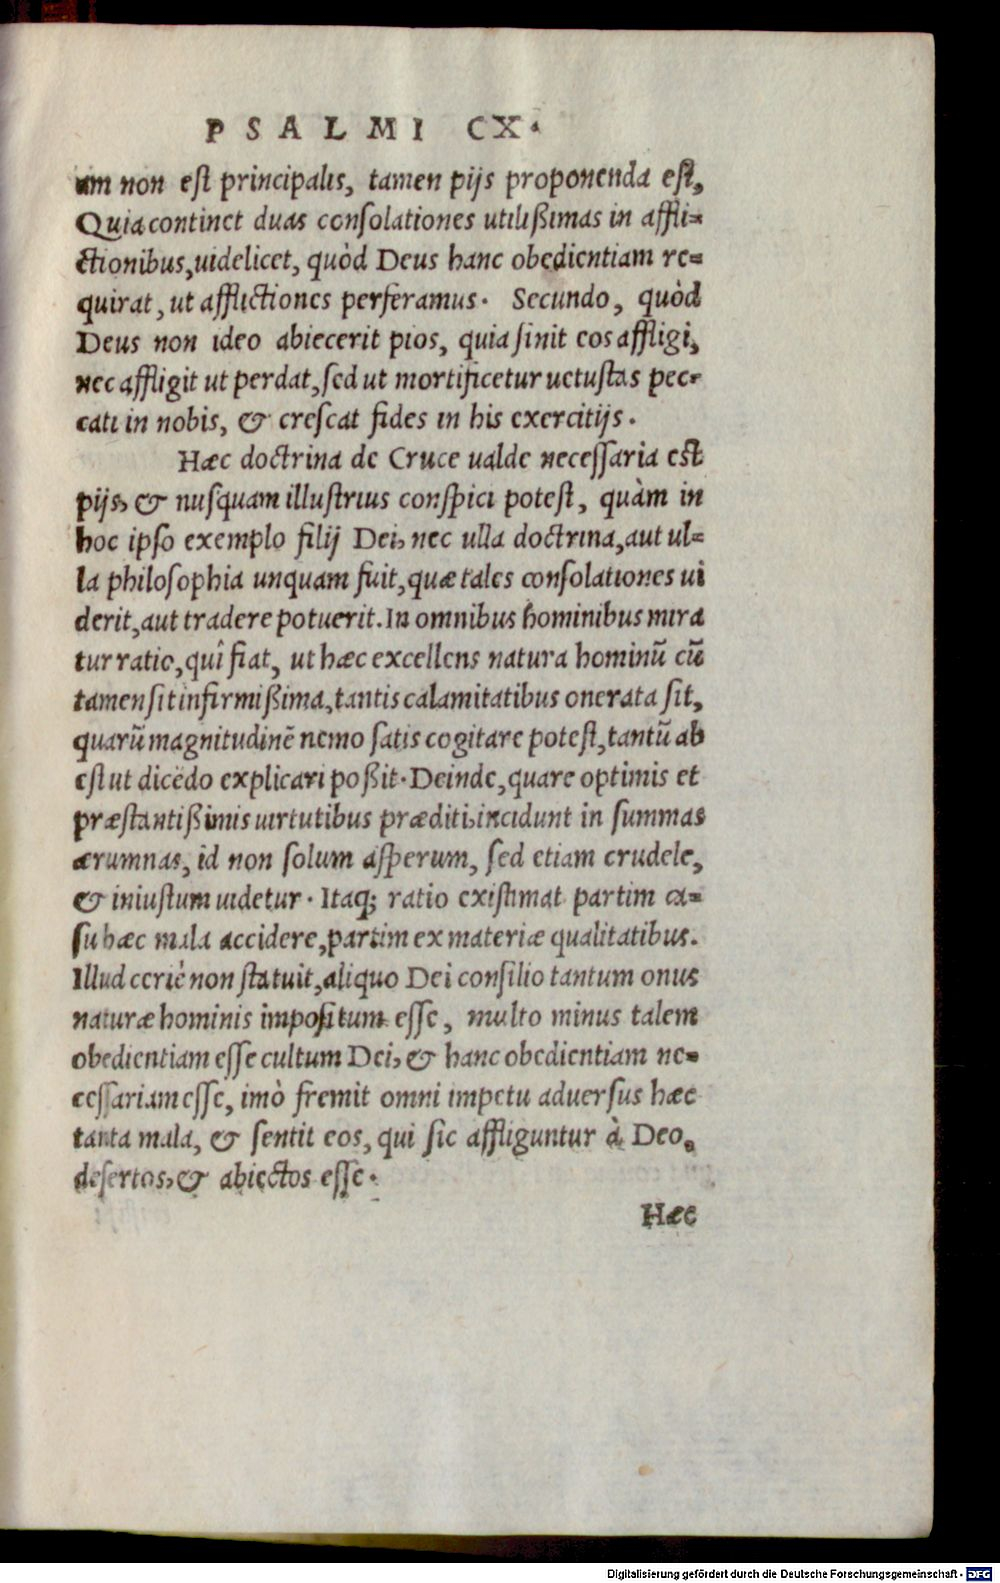 PSALMI CX.
am non est principalis, tamen pijs proponenda est,
Quia continet duas consolationes utilißimas in affli-
ctionibus, uidelicet, quòd Deus hanc obedientiam re-
quirat, ut afflictiones perferamus. Secundo, quòd
Deus non ideo abiecerit pios, quia sinit eos affligi,
nec affligit ut perdat, sed ut mortificetur uetustas pec-
cati in nobis, & crescat fides in his exercitijs.
Hæc doctrina de Cruce ualde necessaria est
pijs, & nusquam illustrius conspici potest, quàm in
hoc ipso exemplo filij Dei, nec ulla doctrina, aut ul-
la philosophia unquam fuit, quæ tales consolationes ui
derit, aut tradere potuerit. In omnibus hominibus mira
tur ratio, quî fiat, ut hæc excellens natura hominũ cũ
tamen sit infirmißima, tantis calamitatibus onerata sit,
quarũ magnitudinẽ nemo satis cogitare potest, tantũ ab
est ut dicẽdo explicari poßit. Deinde, quare optimis et
præstantißimis uirtutibus præditi, incidunt in summas
ærumnas, id non solum asperum, sed etiam crudele,
& iniustum uidetur. Itaq; ratio existimat partim ca-
su hæc mala accidere, partim ex materiæ qualitatibus.
Illud certè non statuit, aliquo Dei consilio tantum onus
naturæ hominis impositum esse, multo minus talem
obedientiam esse cultum Dei, & hanc obedientiam ne-
cessariam esse, imò fremit omni impetu aduersus hæc
tanta mala, & sentit eos, qui sic affliguntur à Deo,
desertos, & abiectos esse.
Hæc
Digitalisierung gefördert durch die Deutsche Forschungsgemeinschaft - DFG